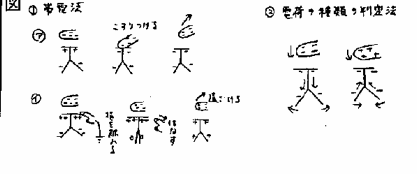 図 ① 帯電法
② 電荷の種類の判定法
㋐
こすりつける
㋑
指を触れる
はなす
遠ざける